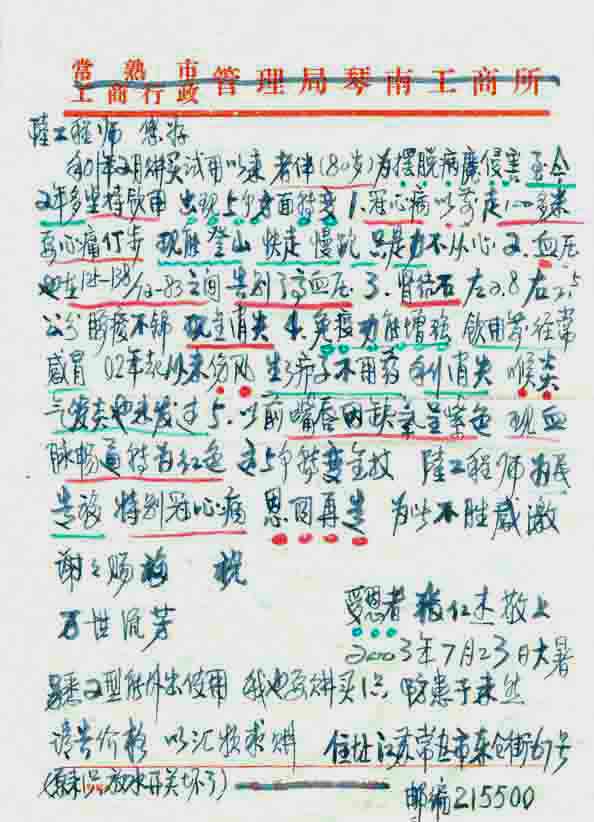 常熟市
工商行政管理局琴南工商所
陆工程师 您好
和01年2月购买试用以来 老伴(80岁)为摆脱病魔侵害 至今
2年多坚持饮用 出现5个方面转变 1.冠心病以前走100多米
要心痛停步 现能登山 快走 慢跑 只是力不从心 2.血压
也在125-138/72-83之间 告别高血压 3.肾结石 左2.8 右2.5
公分 现全消失 4.免疫功能增强 饮用前经常
感冒 02年起从未伤风 生疖子不用药 自消失 喉炎
气管炎也未发过 5.以前嘴唇因缺氧呈紫色 现血
脉畅通转为红色 这5个转变全仗 陆工程师为民
造福 特别冠心病 恩同再造 为此不胜感激
谢之赐 祝
万世流芳
受恩者 张仁杰敬上
2003年7月23日大暑
另悉2型能外出使用 我也要购买1只 防患于未然
请告价格 以汇款求购 住址江苏常熟市东仓街67号
(原来只放水开关坏了)
邮编215500